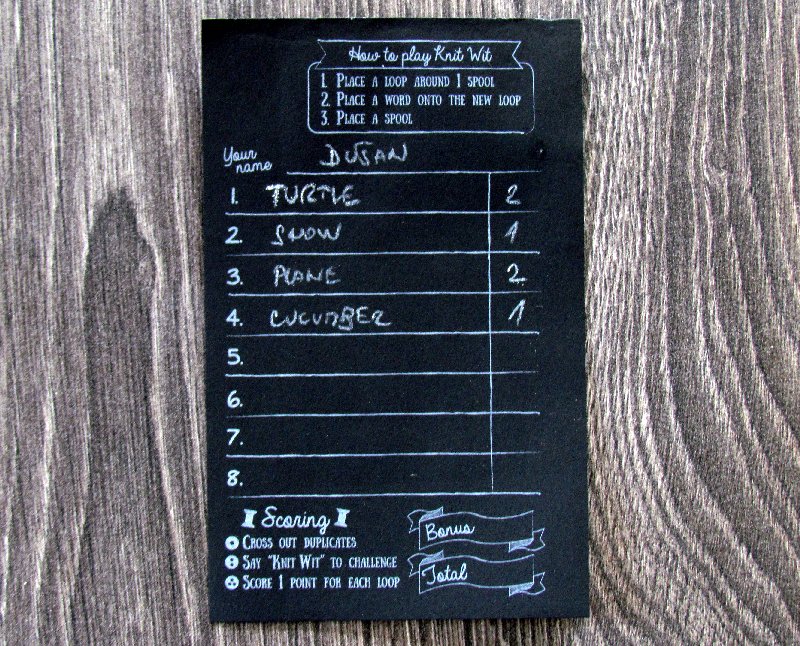 How to play Knit Wit
1. PLACE A LOOP AROUND 1 SPOOL
2. PLACE A WORD ONTO THE NEW LOOP
3. PLACE A SPOOL
Your name DUSAN
1. TURTLE 2
2. SNOW 1
3. PLANE 2
4. CUCUMBER 1
5.
6.
7.
8.
Scoring
CROSS OUT DUPLICATES
SAY "KNIT WIT" TO CHALLENGE
SCORE 1 POINT FOR EACH LOOP
Bonus
Total